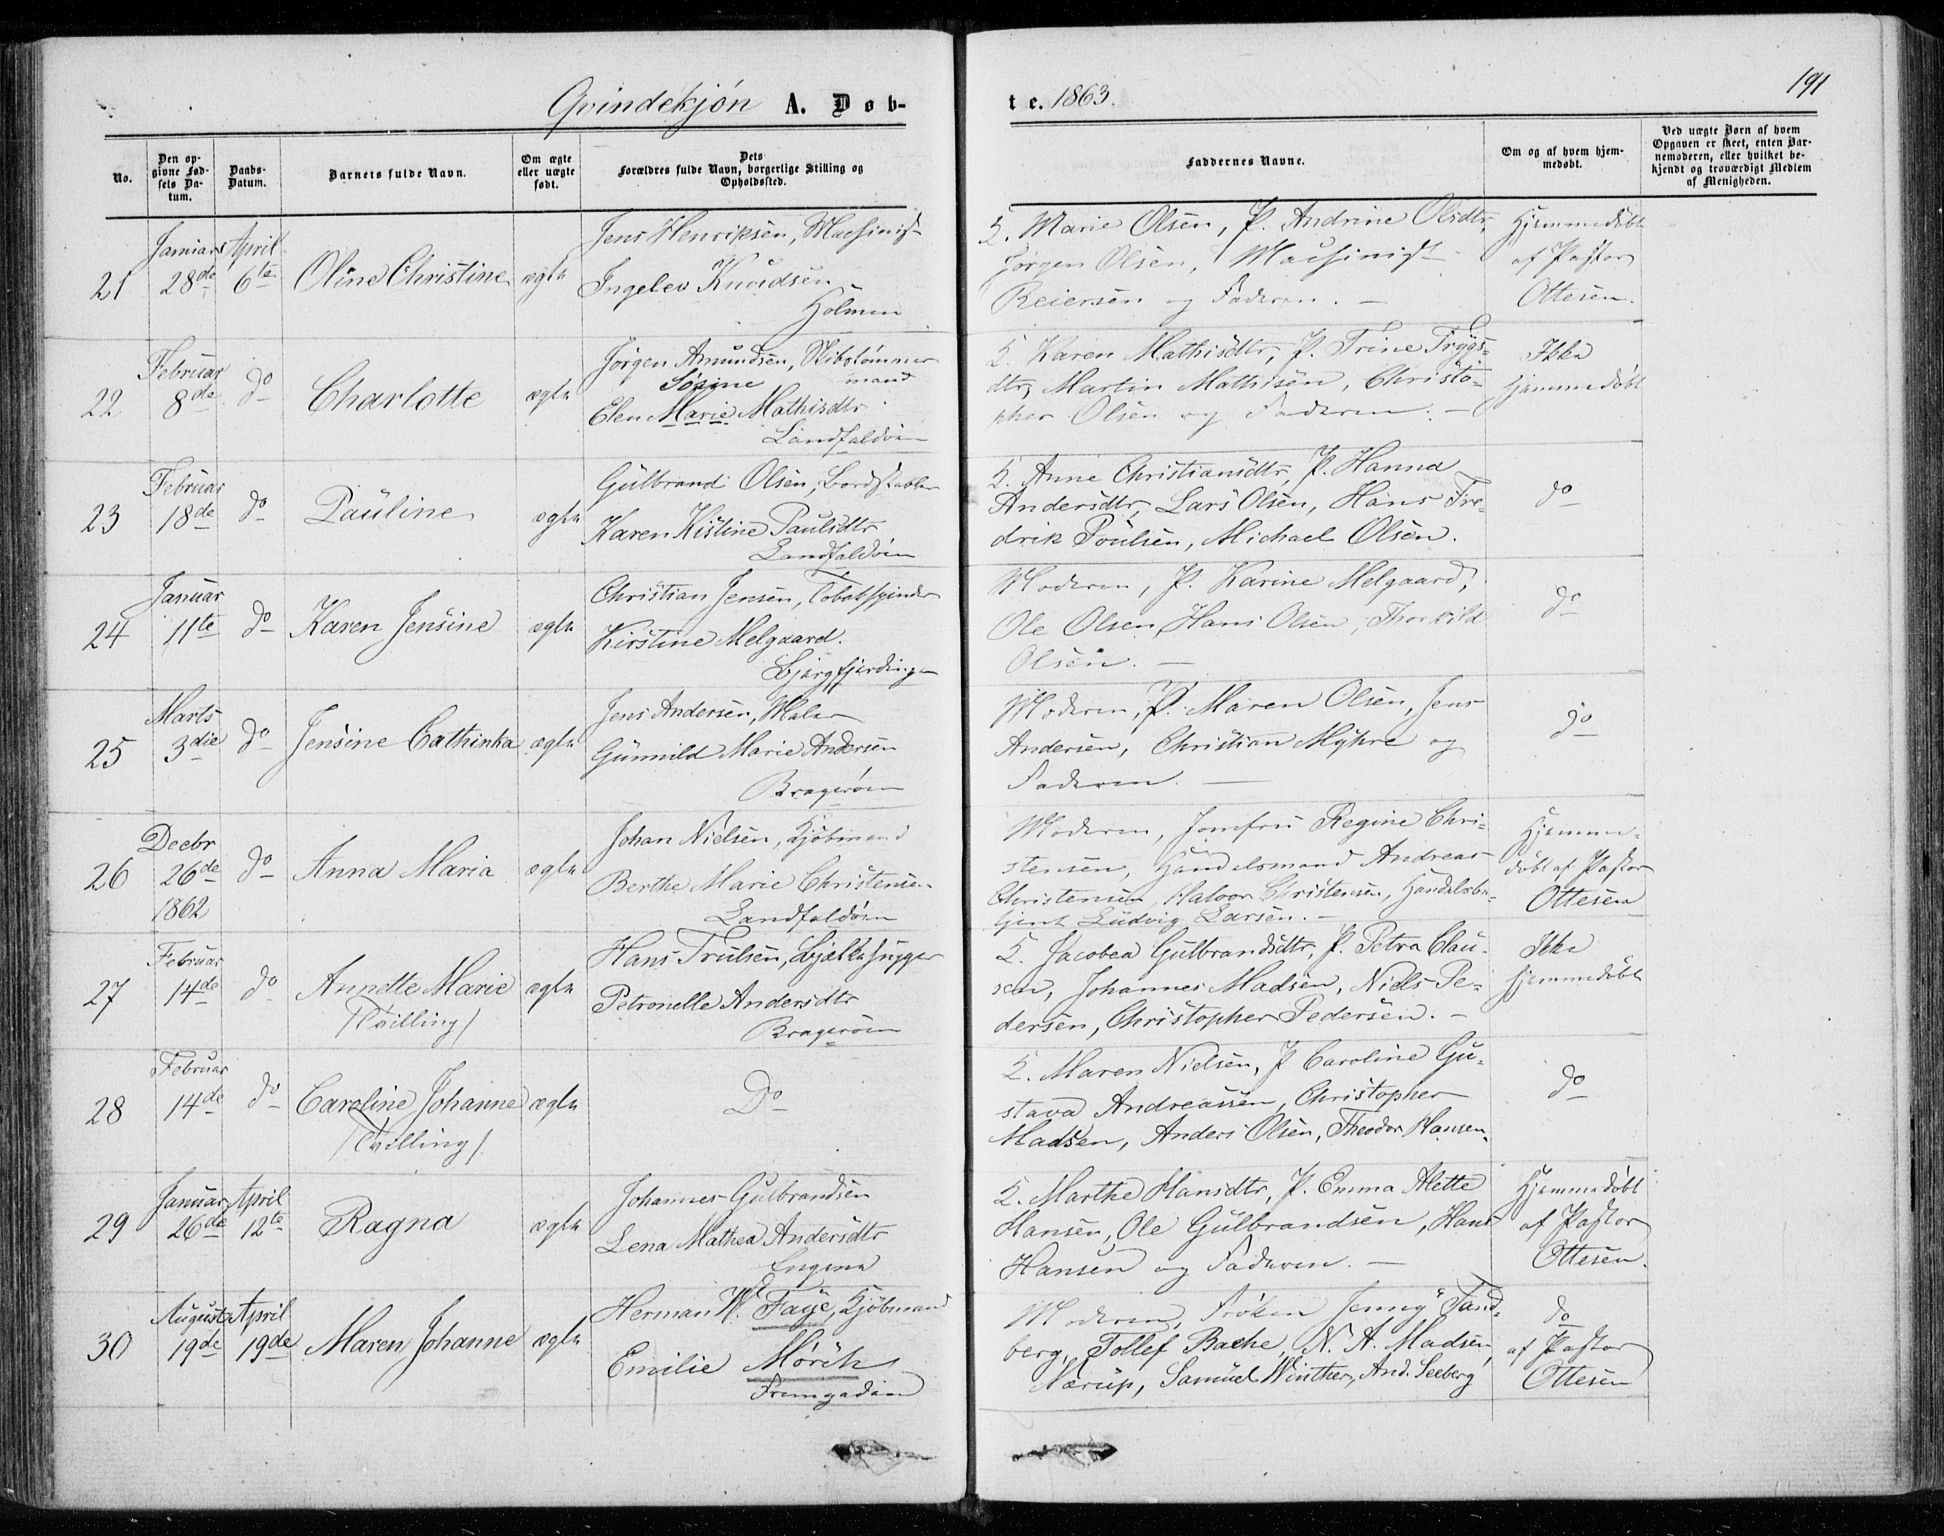 191
Qvindekjøn A. Døb-
te. 1863.
No.
Den op-
givne Fød-
sels Da-
tum.
Daabs-
Datum.
Barnets fulde Navn.
Om ægte
eller uægte
født.
Dets
Forældres fulde Navn, borgerlige Stilling og
Opholdssted.
Faddernes Navne.
Om og af hvem hjem-
medøbt.
Ved uægte Børn af hvem
Opgaven er skeet, enten Bar-
nemoderen, eller hvilket be-
kjendt og troværdigt Medlem
af Menigheden.
21
Januars
28de
April
6te
Oline Christine
ægte
Jens Henriksen, Maschinist
Ingelev Knudsen
Holmen
Q. Marie Olsen, P. Andrine Olsdtr,
Jørgen Olsen, Maschinist
Reiersen og Faderen. —
Hjemmedøbt
af Pastor
Ottesen.
22
Februar
8de
do
Charlotte
ægte
Jørgen Amundsen, Skibstømmer
mand
Sørine
Elen Marie Mathisdtr
Landfaldøen
Q. Karen Mathisdtr, P. Trine Trygs-
dtr, Martin Mathisen, Christo-
pher Olsen og Faderen. —
Ikke
hjemmedøbt
23
Februar
18de
do
Pauline
ægte
Gulbrand Olsen, Bordstabler
Karen Kistine Paulsdtr
Landfaldøen
Q. Anne Christiansdtr, P. Hanna
Andersdtr, Lars Olsen, Hans Fre-
drik Poulsen, Michael Olsen.
do
24
Januar
11te
do
Karen Jensine
ægte
Christian Jensen, Tobakspinder
Kirstine Melgaard.
Bjergfjerdingen
Moderen, P. Karine Melgaard,
Ole Olsen, Hans Olsen, Thorkild
Olsen. —
do
25
Marts
3die
do
Jensine Cathinka
ægte
Jens Andersen, Maler
Gunnild Marie Andersen
Bragerøen
Moderen, P. Maren Olsen, Jens
Andersen, Christian Myhre og
Faderen. —
do
26
Decbr
26de
1862
do
Anna Maria
ægte
Johan Nielsen, Kjøbmand
Berthe Marie Christensen
Landfaldøen
Moderen, Jomfru Regine Chri-
stensen, Handelsmand Andreas
Christensen, Halvor Christensen, Handelsbe-
tjent Ludvig Larsen. —
Hjemme-
døbt af Pastor
Ottesen
27
Februar
14de
do
Annette Marie
/Tvilling/
ægte
Hans Trulsen, Bjælkehugger
Petronelle Andersdtr
Bragerøen
Q. Jacobea Gulbrandsdtr, P. Petra Clau-
sen, Johannes Madsen, Niels Pe-
dersen, Christopher Pedersen. —
Ikke
hjemmedøbt
28
Februar
14de
do
Caroline Johanne
/Tvilling/
ægte
Do
Q. Maren Nielsen, P Caroline Gu-
stava Andreassen, Christopher
Madsen, Anders Olsen, Theodor Hansen.
do
29
Januar
26de
April
12te
Ragna
ægte
Johannes Gulbrandsen
Lena Mathea Andersdtr
Engene
Q. Marthe Hansdtr, P. Emma Alette
Hansen, Ole Gulbrandsen, Hans
Hansen og Faderen. —
Hjemmedøbt
af Pastor
Ottesen.
30
August
19de
April
19de
Maren Johanne
ægte
Herman W. Faye, Kjøbmand
Emilie Mørch
Moderen, Frøken Jenny Tand-
berg, Tollef Bache, N. A. Madsen,
Nærup, Samuel Winther, And. Seeberg
do
af Pastor
Ottesen